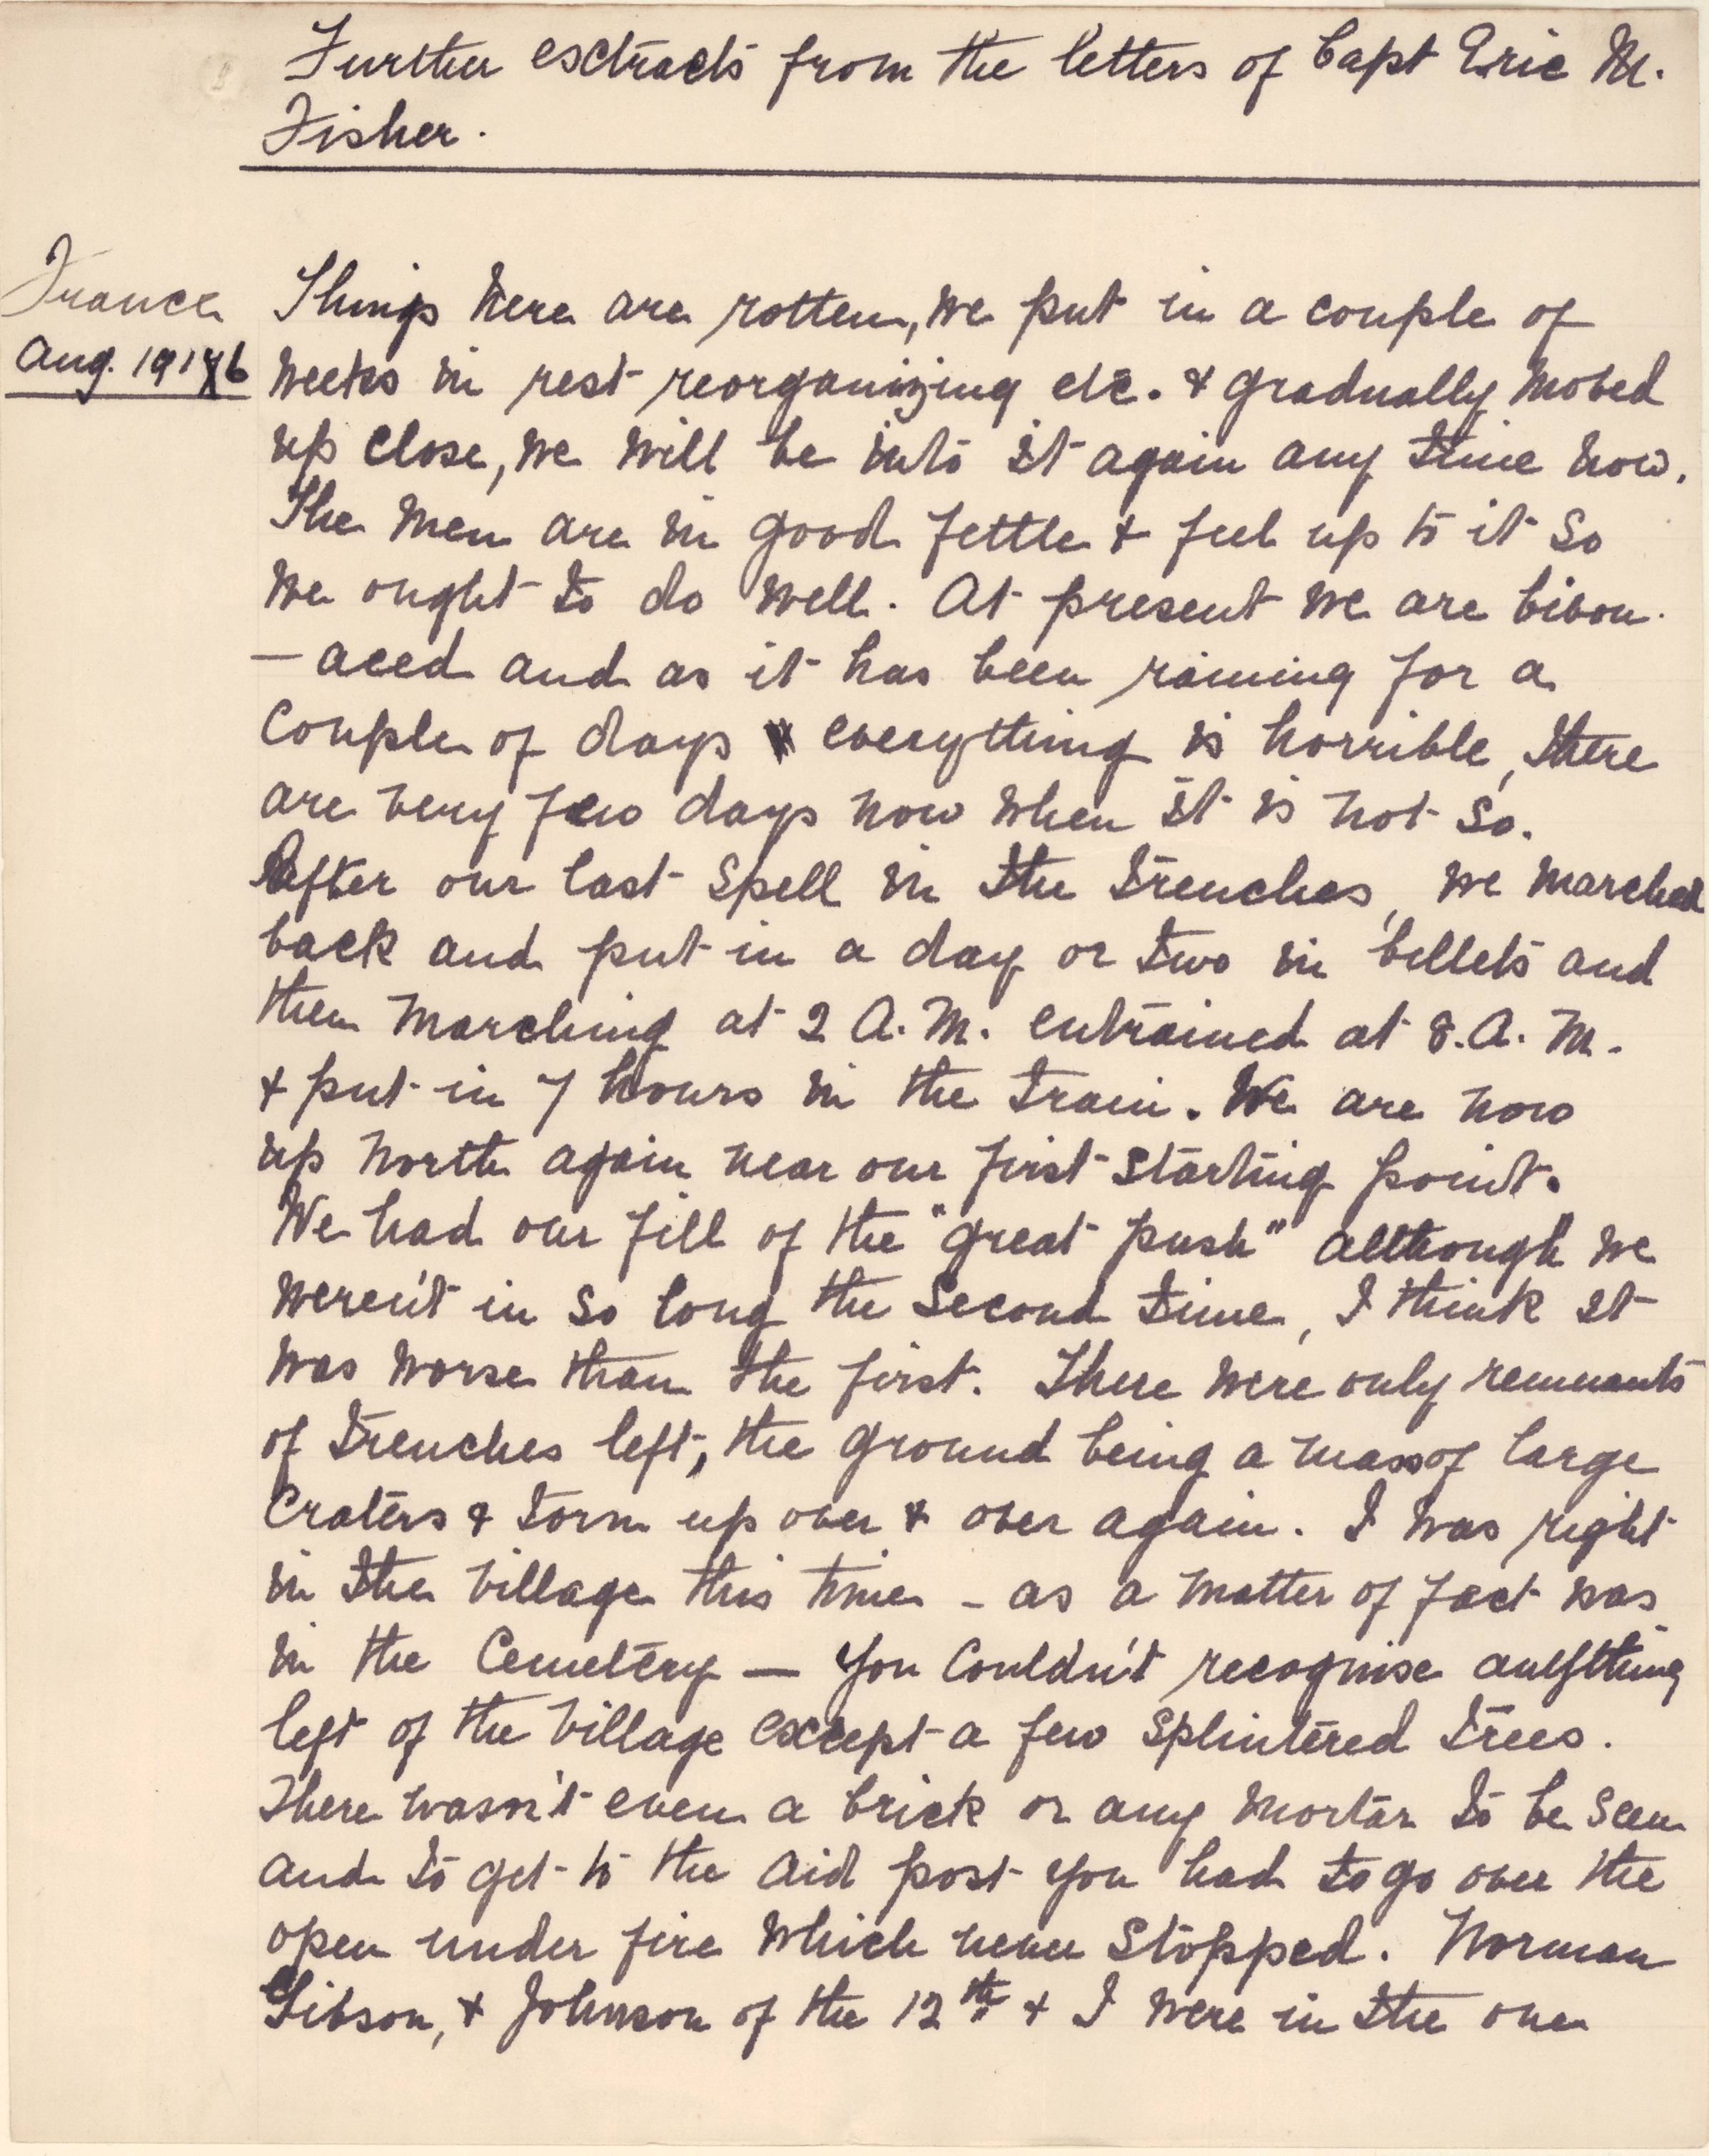 Further extracts from the letters of Capt Eric M.
Fisher.
France
Aug. 1916
Things here are rotten, we put in a couple of
weeks in rest reorganizing etc. & gradually moved
up close, we will be into it again any time now.
The men are in good fettle & feel up to it so
we ought to do well. At present we are bivou-
-aced and as it has been raining for a
couple of days everything is horrible, there
are very few days now when it is not so.
After our last spell in the trenches, we marched
back and put in a day or two in billets and
then marching at 2 A.M. entrained at 8.A.M.
& put in 7 hours in the train. We are now
up north again near our first starting point.
We had our fill of the "great push" although we
weren't in so long the second time, I think it
was worse than the first. There were only remnants
of trenches left, the ground being a mass of large
craters & torn up over & over again. I was right
in the village this time - as a matter of fact was
in the Cemetery — you couldn't recognise anything
left of the village except a few splintered trees.
There wasn't even a brick or any mortar to be seen
and to get to the aid post you had to go over the
open under fire which never stopped. Norman
Gibson, & Johnson of the 12th & I were in the one